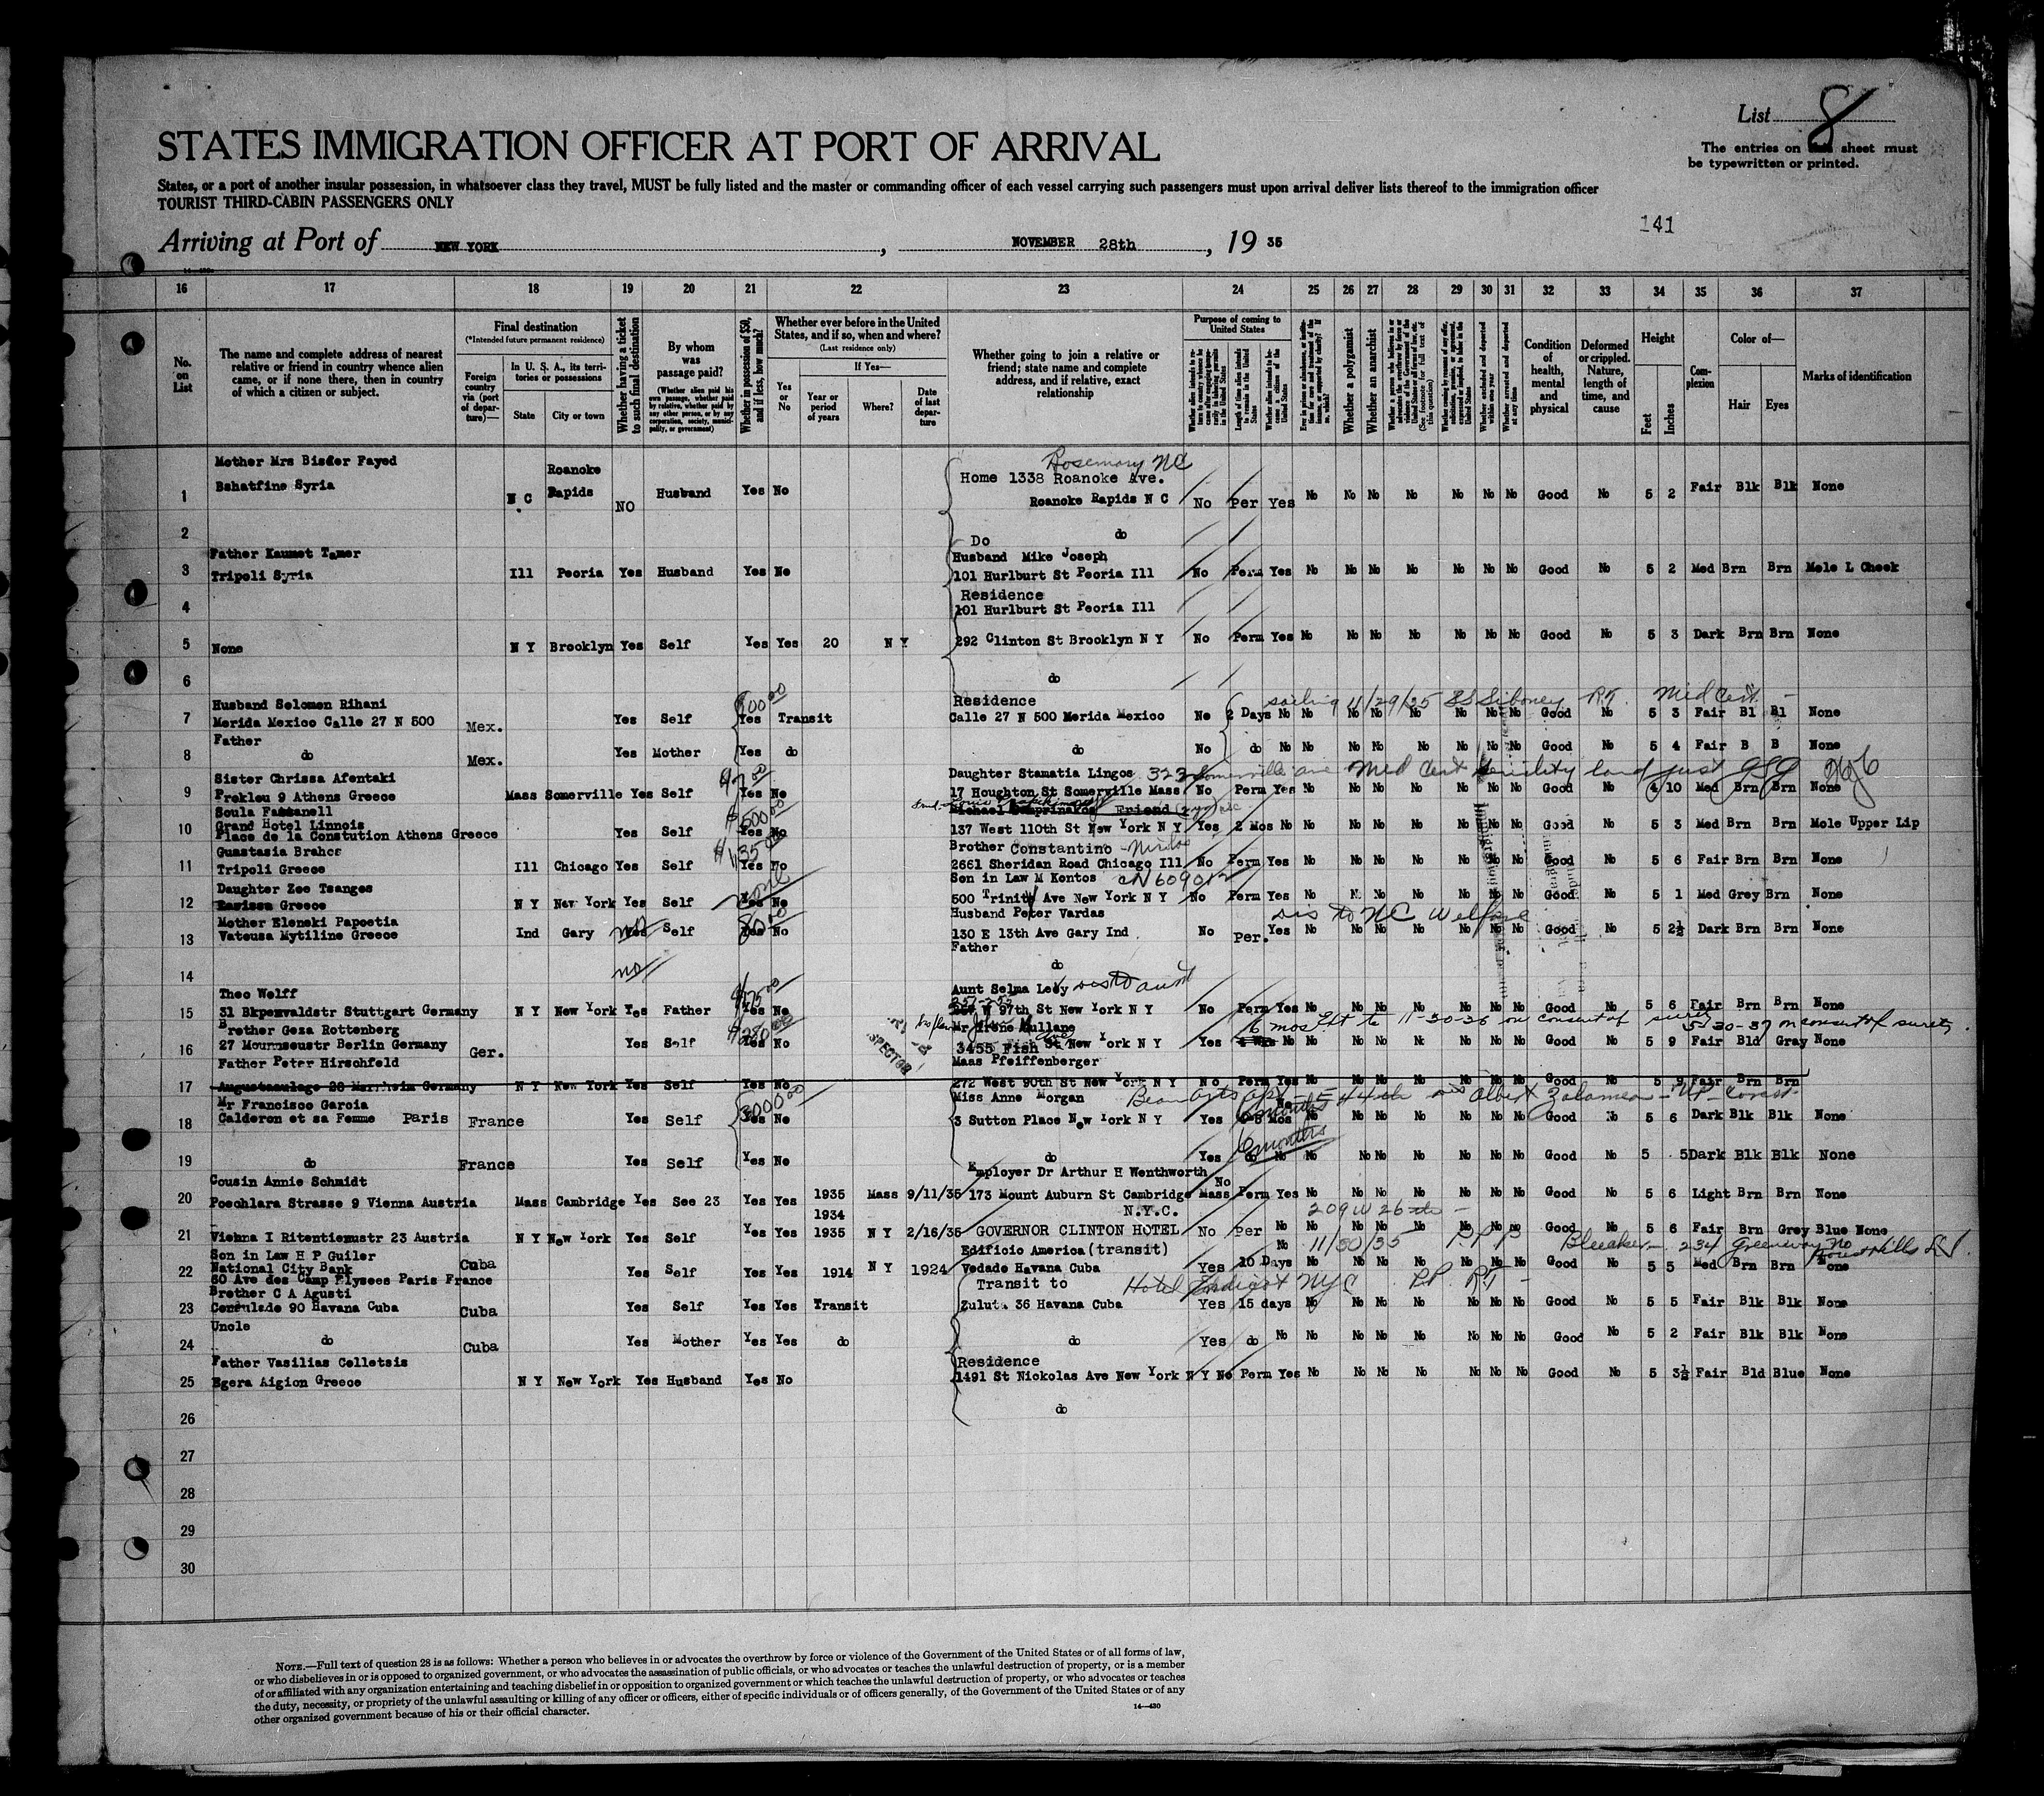 List 8
The entries on this sheet must
be typewritten or printed.
STATES IMMIGRATION OFFICER AT PORT OF ARRIVAL
States, or a port of another insular possession, in whatsoever class they travel, MUST be fully listed and the master or commanding officer of each vessel carrying such passengers must upon arrival deliver lists thereof to the immigration officer
TOURIST THIRD-CABIN PASSENGERS ONLY
141
Arriving at Port of NEW YORK, NOVEMBER 28th, 19 35
16 17 18 19 20 21 22 23 24 25 26 27 28 29 30 31 32 33 34 35 36 37
No. on List
The name and complete address of nearest relative or friend in country whence alien came, or if none there, then in country of which a citizen or subject.
Final destination
(*Intended future permanent residence)
Foreign country via (port of departure)—
In U. S. A., its territories or possessions
State
City or town
Whether having a ticket to such final destination
By whom was passage paid?
(Whether alien paid his own passage, whether paid by relative, whether paid by any other person, or by any corporation, society, municipality, or government)
Whether in possession of $50, and if less, how much?
Whether ever before in the United States, and if so, when and where?
(Last residence only)
Yes or No
If Yes—
Year or period of years
Where?
Date of last departure
Whether going to join a relative or friend; state name and complete address, and if relative, exact relationship
Purpose of coming to United States
Whether a polygamist
Whether an anarchist
Condition of health, mental and physical
Deformed or crippled. Nature, length of time, and cause
Height
Feet
Inches
Complexion
Color of—
Hair
Eyes
Marks of identification
Mother Mrs Bisder Fayed Roanoke Rosemary NC
Home 1338 Roanoke Ave.
1 Bshatfine Syria N C Rapids NO Husband Yes No Roanoke Rapids N C No Per Yes No No No No No No No Good No 5 2 Fair Blk Blk None
2 Do do
Father Kaumet Tamer Husband Mike Joseph
3 Tripoli Syria Ill Peoria Yes Husband Yes No 101 Hurlburt St Peoria Ill No Perm Yes No No No No No No No Good No 5 2 Med Brn Brn Mole L Cheek
Residence
4 101 Hurlburt St Peoria Ill
5 None N Y Brooklyn Yes Self Yes Yes 20 N Y 292 Clinton St Brooklyn N Y No Perm Yes No No No No No No No Good No 5 3 Dark Brn Brn None
6 do
Husband Solomen Rihani $100.00 Residence sailing 11/29/35 SS Siboney RT. Med Cert. -
7 Merida Mexico Calle 27 N 500 Mex. Yes Self Yes Transit Calle 27 N 500 Merida Mexico No 2 Days No No No No No No No No Good No 5 3 Fair Bl Bl None
Father
8 do Mex. Yes Mother Yes do do No do No No No No No No No No Good No 5 4 Fair B B None
Sister Chrissa Afentaki $7.00 Daughter Stamatia Lingos 323 Somerville ave Med Cert Senility
9 Prokleu 9 Athens Greece Mass Somerville Yes Self Yes No 17 Houghton St Somerville Mass No Perm Yes No No No No No No No Good No 4 10 Med Brn Brn None
Soula Fattanell $500.00 Friend
Grand Hotel Linnois
10 Place de la Constution Athens Greece Yes Self Yes No 137 West 110th St New York N Y Yes 2 Mos No No No No No No No No Good No 5 3 Med Brn Brn Mole Upper Lip
Guastasia Brahos $1135.00 Brother Constantino
11 Tripoli Greece Ill Chicago Yes Self Yes No 2661 Sheridan Road Chicago Ill No Perm Yes No No No No No No No Good No 5 6 Fair Brn Brn None
Daughter Zoe Tsanges none Son in Law M Kontos cN609012
12 Larissa Greece N Y New York Yes Self Yes No 500 Trinity Ave New York N Y No Perm Yes No No No No No No No Good No 5 1 Med Grey Brn None
Mother Elenski Papoetia 80.00 Husband Peter Vardas dis to NC Welfare
13 Vateusa Mytiline Greece Ind Gary Yes no Self Yes No 130 E 13th Ave Gary Ind No Per. Yes No No No No No No No Good No 5 2½ Dark Brn Brn None
Father
14 no do
Theo Wolff $175.00 Aunt Selma Leoy dis to aunt
15 31 Bkpenvaldstr Stuttgart Germany N Y New York Yes Father Yes No W 97th St New York N Y No Perm Yes No No No No No No No Good No 5 6 Fair Brn Brn None
Brother Geza Rottenberg $280.00 Mr Irene Mullane 6 mos Ext to 11-30-36 on consent of surety 5/30-37 on consent of surety.
16 27 Mournseustr Berlin Germany Ger. Yes Self Yes No 3455 Fish St New York N Y Yes No No No No No No No No Good No 5 9 Fair Bld Gray None
Father Peter Hirschfeld Maas Pfeiffenberger
17 Augustaaulage 28 Mannheim Germany N Y New York Yes Self Yes No 272 West 90th St New York N Y No Perm Yes No No No No No No No Good No 5 9 Fair Brn Brn
Mr Francisco Garcia 3000.00 Miss Anne Morgan Beaux arts apt - E 44th
18 Calderon et sa Femme Paris France Yes Self Yes No 3 Sutton Place New York N Y Yes 6 months No No No No No No No No Good No 5 6 Dark Blk Blk None
19 do France Yes Self Yes No do Yes do 6 months No No No No No No No No Good No 5 5 Dark Blk Blk None
Cousin Annie Schmidt Employer Dr Arthur H Wenthworth
20 Poechlara Strasse 9 Vienna Austria Mass Cambridge Yes See 23 Yes Yes 1935 Mass 9/11/35 173 Mount Auburn St Cambridge Mass No Perm Yes No No No No No No No Good No 5 6 Light Brn Brn None
1934 N.Y.C. 209 W 26th -
21 Vienna I Ritentiemustr 23 Austria N Y New York Yes Self Yes Yes 1935 N Y 2/16/35 GOVERNOR CLINTON HOTEL No Per No No No No No No No No Good No 5 6 Fair Brn Grey Blue None
Son in Law H P Guiler Edificio America (transit) 11/30/35 234 Greenway No
National City Bank
22 60 Ave des Camp Elysees Paris France Cuba Yes Self Yes Yes 1914 N Y 1924 Vedade Havana Cuba Yes 10 Days No No No No No No No No Good No 5 5 Med Brn Brn None
Brother C A Agusti Transit to Hotel Endicot NYC PP. RT -
23 Consulade 90 Havana Cuba Cuba Yes Self Yes Yes Transit Zulueta 36 Havana Cuba Yes 15 days No No No No No No No No Good No 5 5 Fair Blk Blk None
Uncle
24 do Cuba Yes Mother Yes Yes do do Yes do No No No No No No No No Good No 5 2 Fair Blk Blk None
Father Vasilias Colletsis Residence
25 Egera Aigion Greece N Y New York Yes Husband Yes No 1491 St Nickolas Ave New York N Y No Perm Yes No No No No No No No Good No 5 3½ Fair Bld Blue None
26 do
27
28
29
30
NOTE.—Full text of question 28 is as follows: Whether a person who believes in or advocates the overthrow by force or violence of the Government of the United States or of all forms of law,
or who disbelieves in or is opposed to organized government, or who advocates the assassination of public officials, or who advocates or teaches the unlawful destruction of property, or is a member
of or affiliated with any organization entertaining and teaching disbelief in or opposition to organized government or which teaches the unlawful destruction of property, or who advocates or teaches
the duty, necessity, or propriety of the unlawful assaulting or killing of any officer or officers, either of specific individuals or of officers generally, of the Government of the United States or of any
other organized government because of his or their official character.
14—430